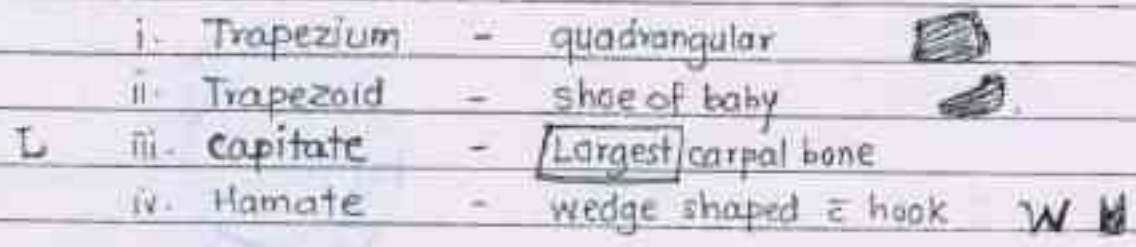 i. Trapezium - quadrangular
ii. Trapezoid - shoe of baby
L iii. Capitate - Largest carpal bone
iv. Hamate - wedge shaped c̄ hook W H